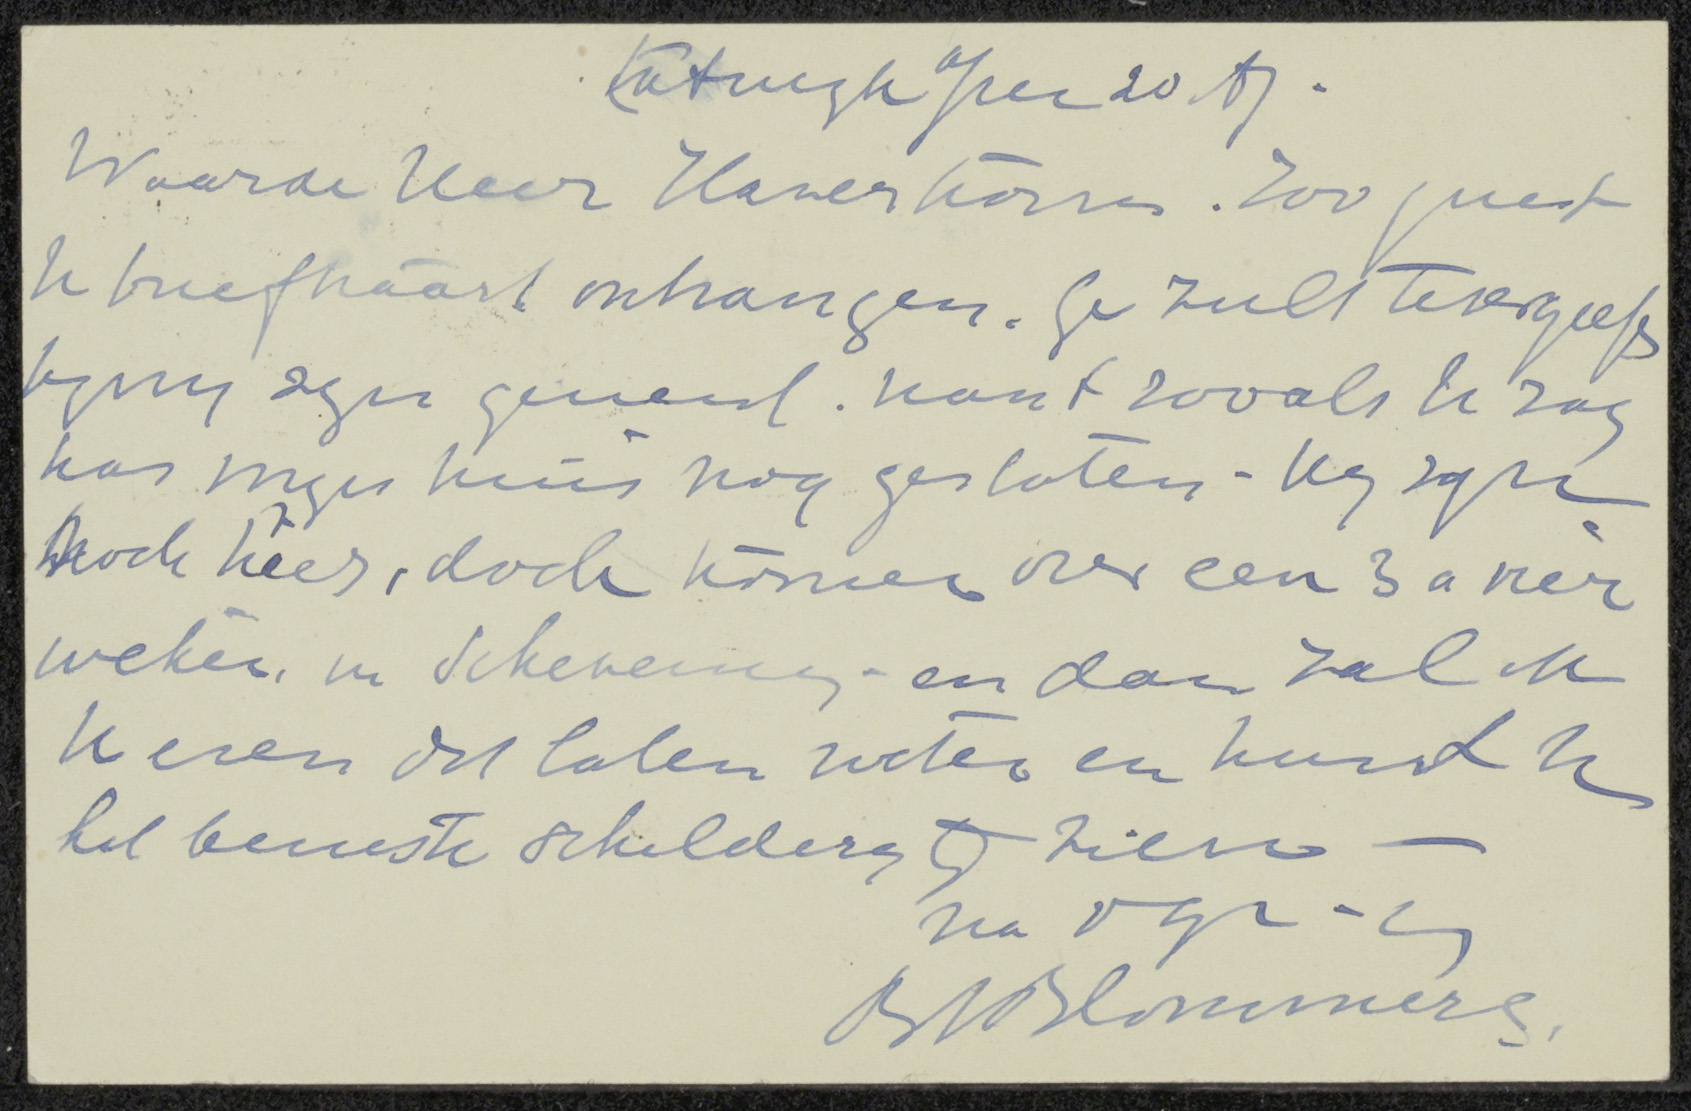 Katwijk a/zee 20 Aj.
Waarde Heer Haverkorn. Zoo juist
U briefkaart ontvangen. Ge zult tevergeefs
by my zyn geweest. want zooals U zag
was myn huis nog gesloten - Wy zyn
noch hier, doch komen over een 3 a vier
weken. in Schevening - en dan zal ik
U even dit laten weten en kunt U
het bewuste schildery zien —
na vgr -
BJ Blommers.